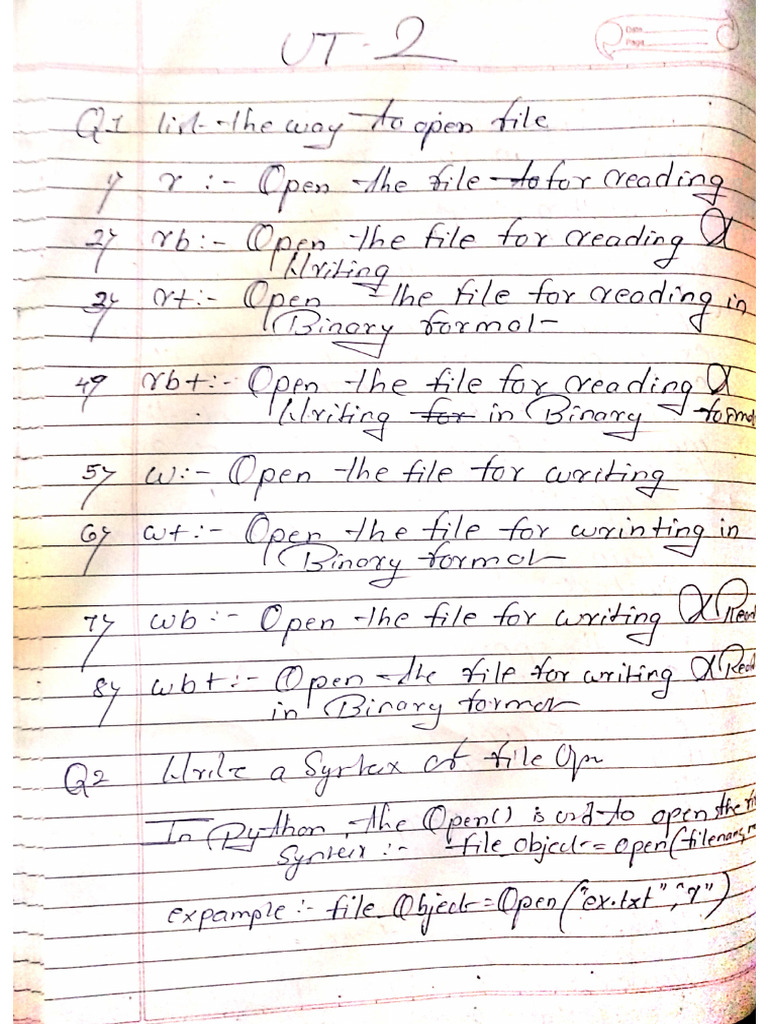 UT-2
Date
Page
Q1 list the way to open file
1) r :- Open the file to for reading
2) rb :- Open the file for reading &
Writing
3) rt :- Open the file for reading in
Binary format
4) rbt :- Open the file for reading &
Writing for in Binary forma
5) w :- Open the file for writing
6) wt :- Open the file for wrinting in
Binary format
7) wb :- Open the file for writing & Read
8) wbt :- Open the file for writing & Read
in Binary format
Q2 Write a Syntex of file Opn
In Python, the Open() is usd to open the fi
Syntex :- file_object = open(filename, m
expample :- file_Object = Open("ex.txt","r")